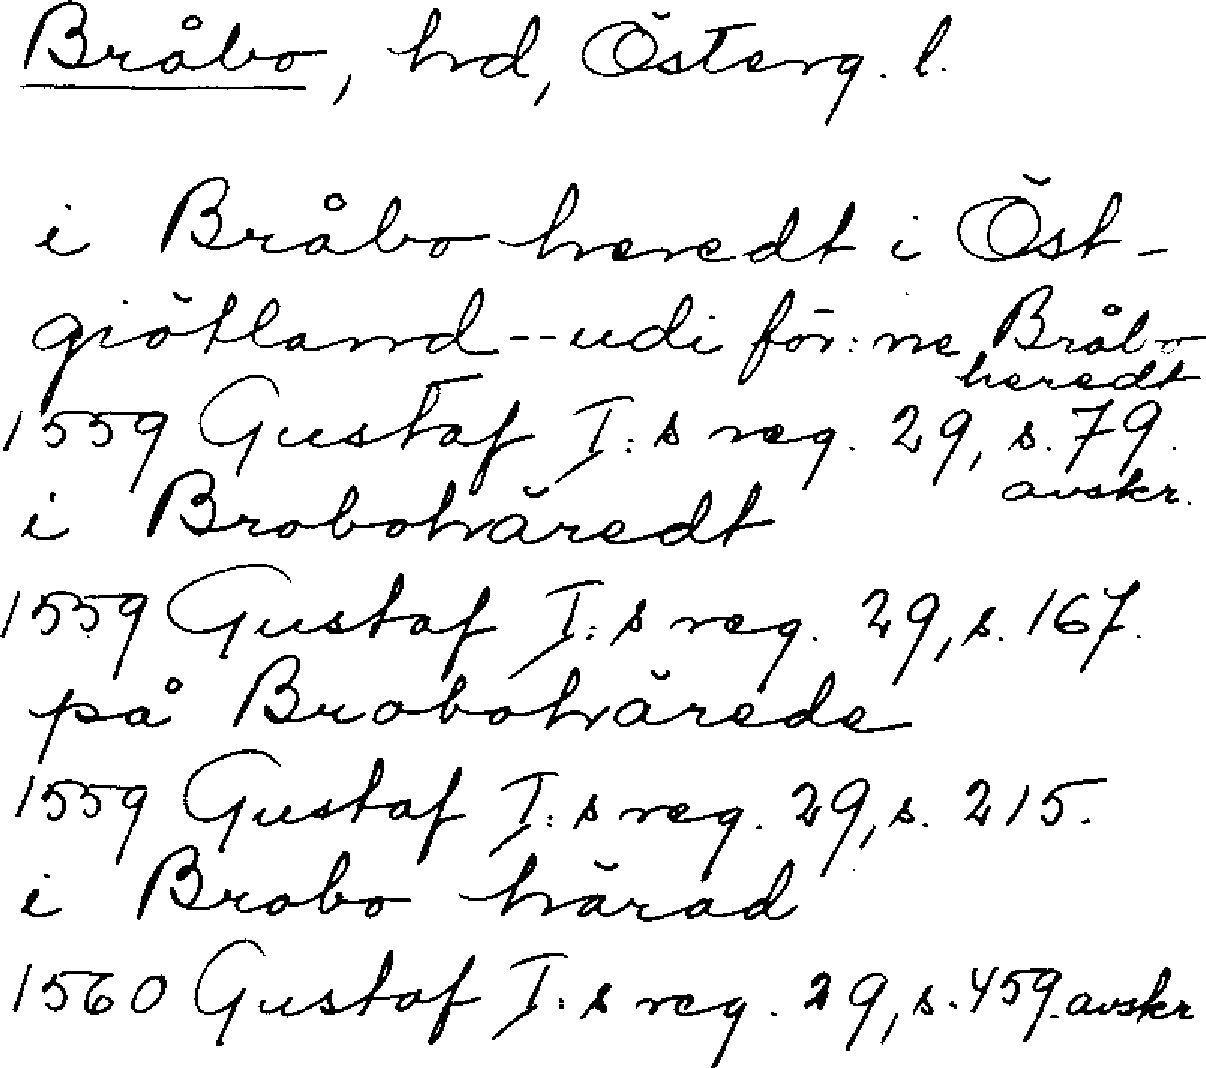 Bråbo, hd, Österg. l.
i Bråbo heredt i Öst-
giötland -- udi för:ne Bråbo
heredt
1559 Gustaf I:s reg. 29, s. 79.
avskr.
i Brobohäredt
1559 Gustaf I:s reg. 29, s. 167.
på Brobohärede
1559 Gustaf I:s reg. 29, s. 215.
i Brobo härad
1560 Gustaf I:s reg. 29, s. 459. avskr